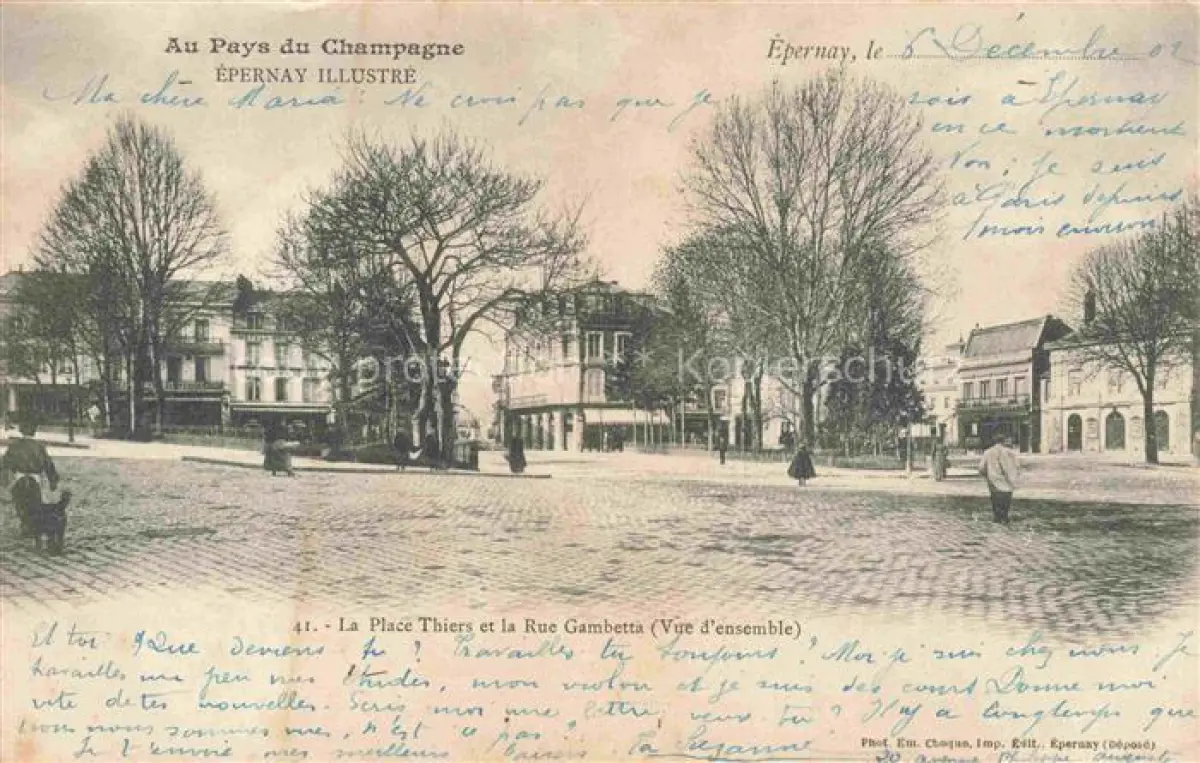 Au Pays du Champagne
ÉPERNAY ILLUSTRÉ
Épernay, le 6 Décembre 02
Ma chère Maria : Ne crois pas que je sois à Epernay
en ce moment
Non ; je suis
à Paris depuis
1 mois environ
protected * Kopierschutz
41. - La Place Thiers et la Rue Gambetta (Vue d'ensemble)
Et toi ? Que deviens tu ? Travailles tu toujours ? Moi je suis chez nous. Je
travailles un peu mes études, mon violon et je suis des cours Donne moi
vite de tes nouvelles. Ecris moi une lettre, veux tu ? Il y a longtemps que
nous nous sommes vues, n'est ce pas ?
Je t'envoie mes meilleurs baisers Ta Suzanne
Phot. Em. Choque, Imp. Édit., Épernay (Déposé)
20 avenue Philippe auguste